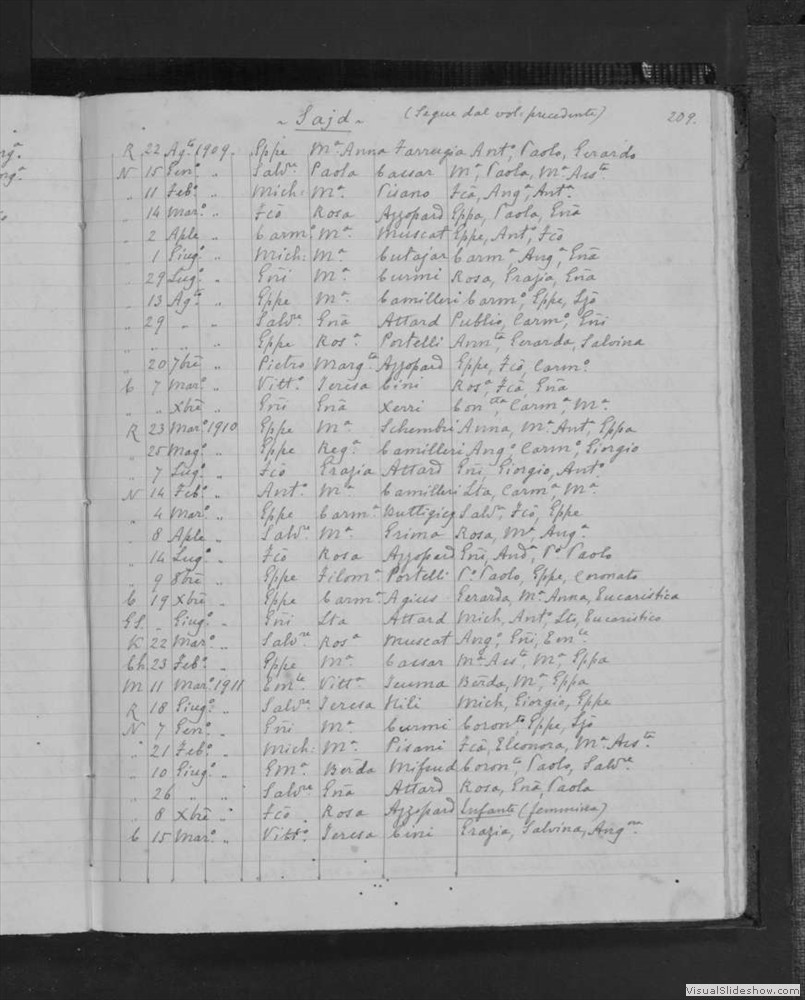 Sajd (Segue dal vol: precedente) 209.
R 22 Agto 1909 Eppe Ma Anna Farrugia Anto, Paolo, Gerardo
N 15 Geno „ Salvre Paola Caesar Ma, Paola, Ma Assta
„ 11 Febo „ Mich: Ma Pisano Fcã, Anga, Anta
„ 14 Maro „ Fcõ Rosa Azzopard Eppa, Paola, Gnã
„ 2 Aple „ Carmo Ma Muscat Eppe, Anto, Fcõ
„ 1 Giugo „ Mich: Ma Cutajar Carma Anga, Gnã
„ 29 Lugo „ Gñi Ma Curmi Rosa, Grazia, Gnã
„ 13 Agto „ Eppe Ma Camilleri Carmo, Eppe, Ljõ
„ 29 „ „ Salvre Gnã Attard Publio, Carmo, Gñi
„ „ „ „ Eppe Rosa Portelli Annta, Gerarda, Salvina
„ 20 7bre „ Pietro Margta Azzopard Eppe, Fcõ, Carmo
C 7 Maro „ Vitto Teresa Cini Rosa, Fcã, Gnã
„ „ Xbre „ Gñi Gnã Xerri Conctta, Carma, Ma
R 23 Maro 1910 Eppe Ma Schembri Anna, Ma Anta, Eppa
„ 25 Mago „ Eppe Rega Camilleri Ango, Carmo, Giorgio
„ 7 Lugo „ Fcõ Grazia Attard Gñi, Giorgio, Anto
N 14 Febo „ Anto Ma Camilleri Lta, Carma, Ma
„ 4 Maro „ Eppe Carma Buttigieg Salvre, Fcõ, Eppe
„ 8 Aple „ Salvre Ma Grima Rosa, Ma Anga
„ 14 Lugo „ Fcõ Rosa Azzopard Gñi, And, Po Paolo
„ 9 8bre „ Eppe Filoma Portelli Po Paolo, Eppe, Coronato
C 19 Xbre „ Eppe Carma Agius Gerarda, Ma Anna, Eucaristica
GS „ Giugo „ Gñi Lta Attard Mich, Anto, Lto, Eucaristico
K 22 Maro „ Salvre Rosa Muscat Ango, Gñi, Emle
Ch 23 Febo „ Eppe Ma Caesar Ma Assta, Ma, Eppa
M 11 Maro 1911 Emle Vitta Scuma Berda, Ma, Eppa
R 18 Giugo „ Salvre Teresa Hili Mich, Giorgio, Eppe
N 7 Geno „ Gñi Ma Curmi Coronto, Eppe, Ljõ
„ 21 Febo „ Mich: Ma Pisani Fcã, Eleonora, Ma Assta
„ 10 Giugo „ Gma Berda Mifsud Coronto, Paolo, Salvre
„ 26 „ „ Salvre Gnã Attard Rosa, Gnã, Paola
„ 8 Xbre „ Fcõ Rosa Azzopard Infante (femmina)
C 15 Maro „ Vitto Teresa Cini Grazia, Salvina, Ang
VisualSlideshow.com